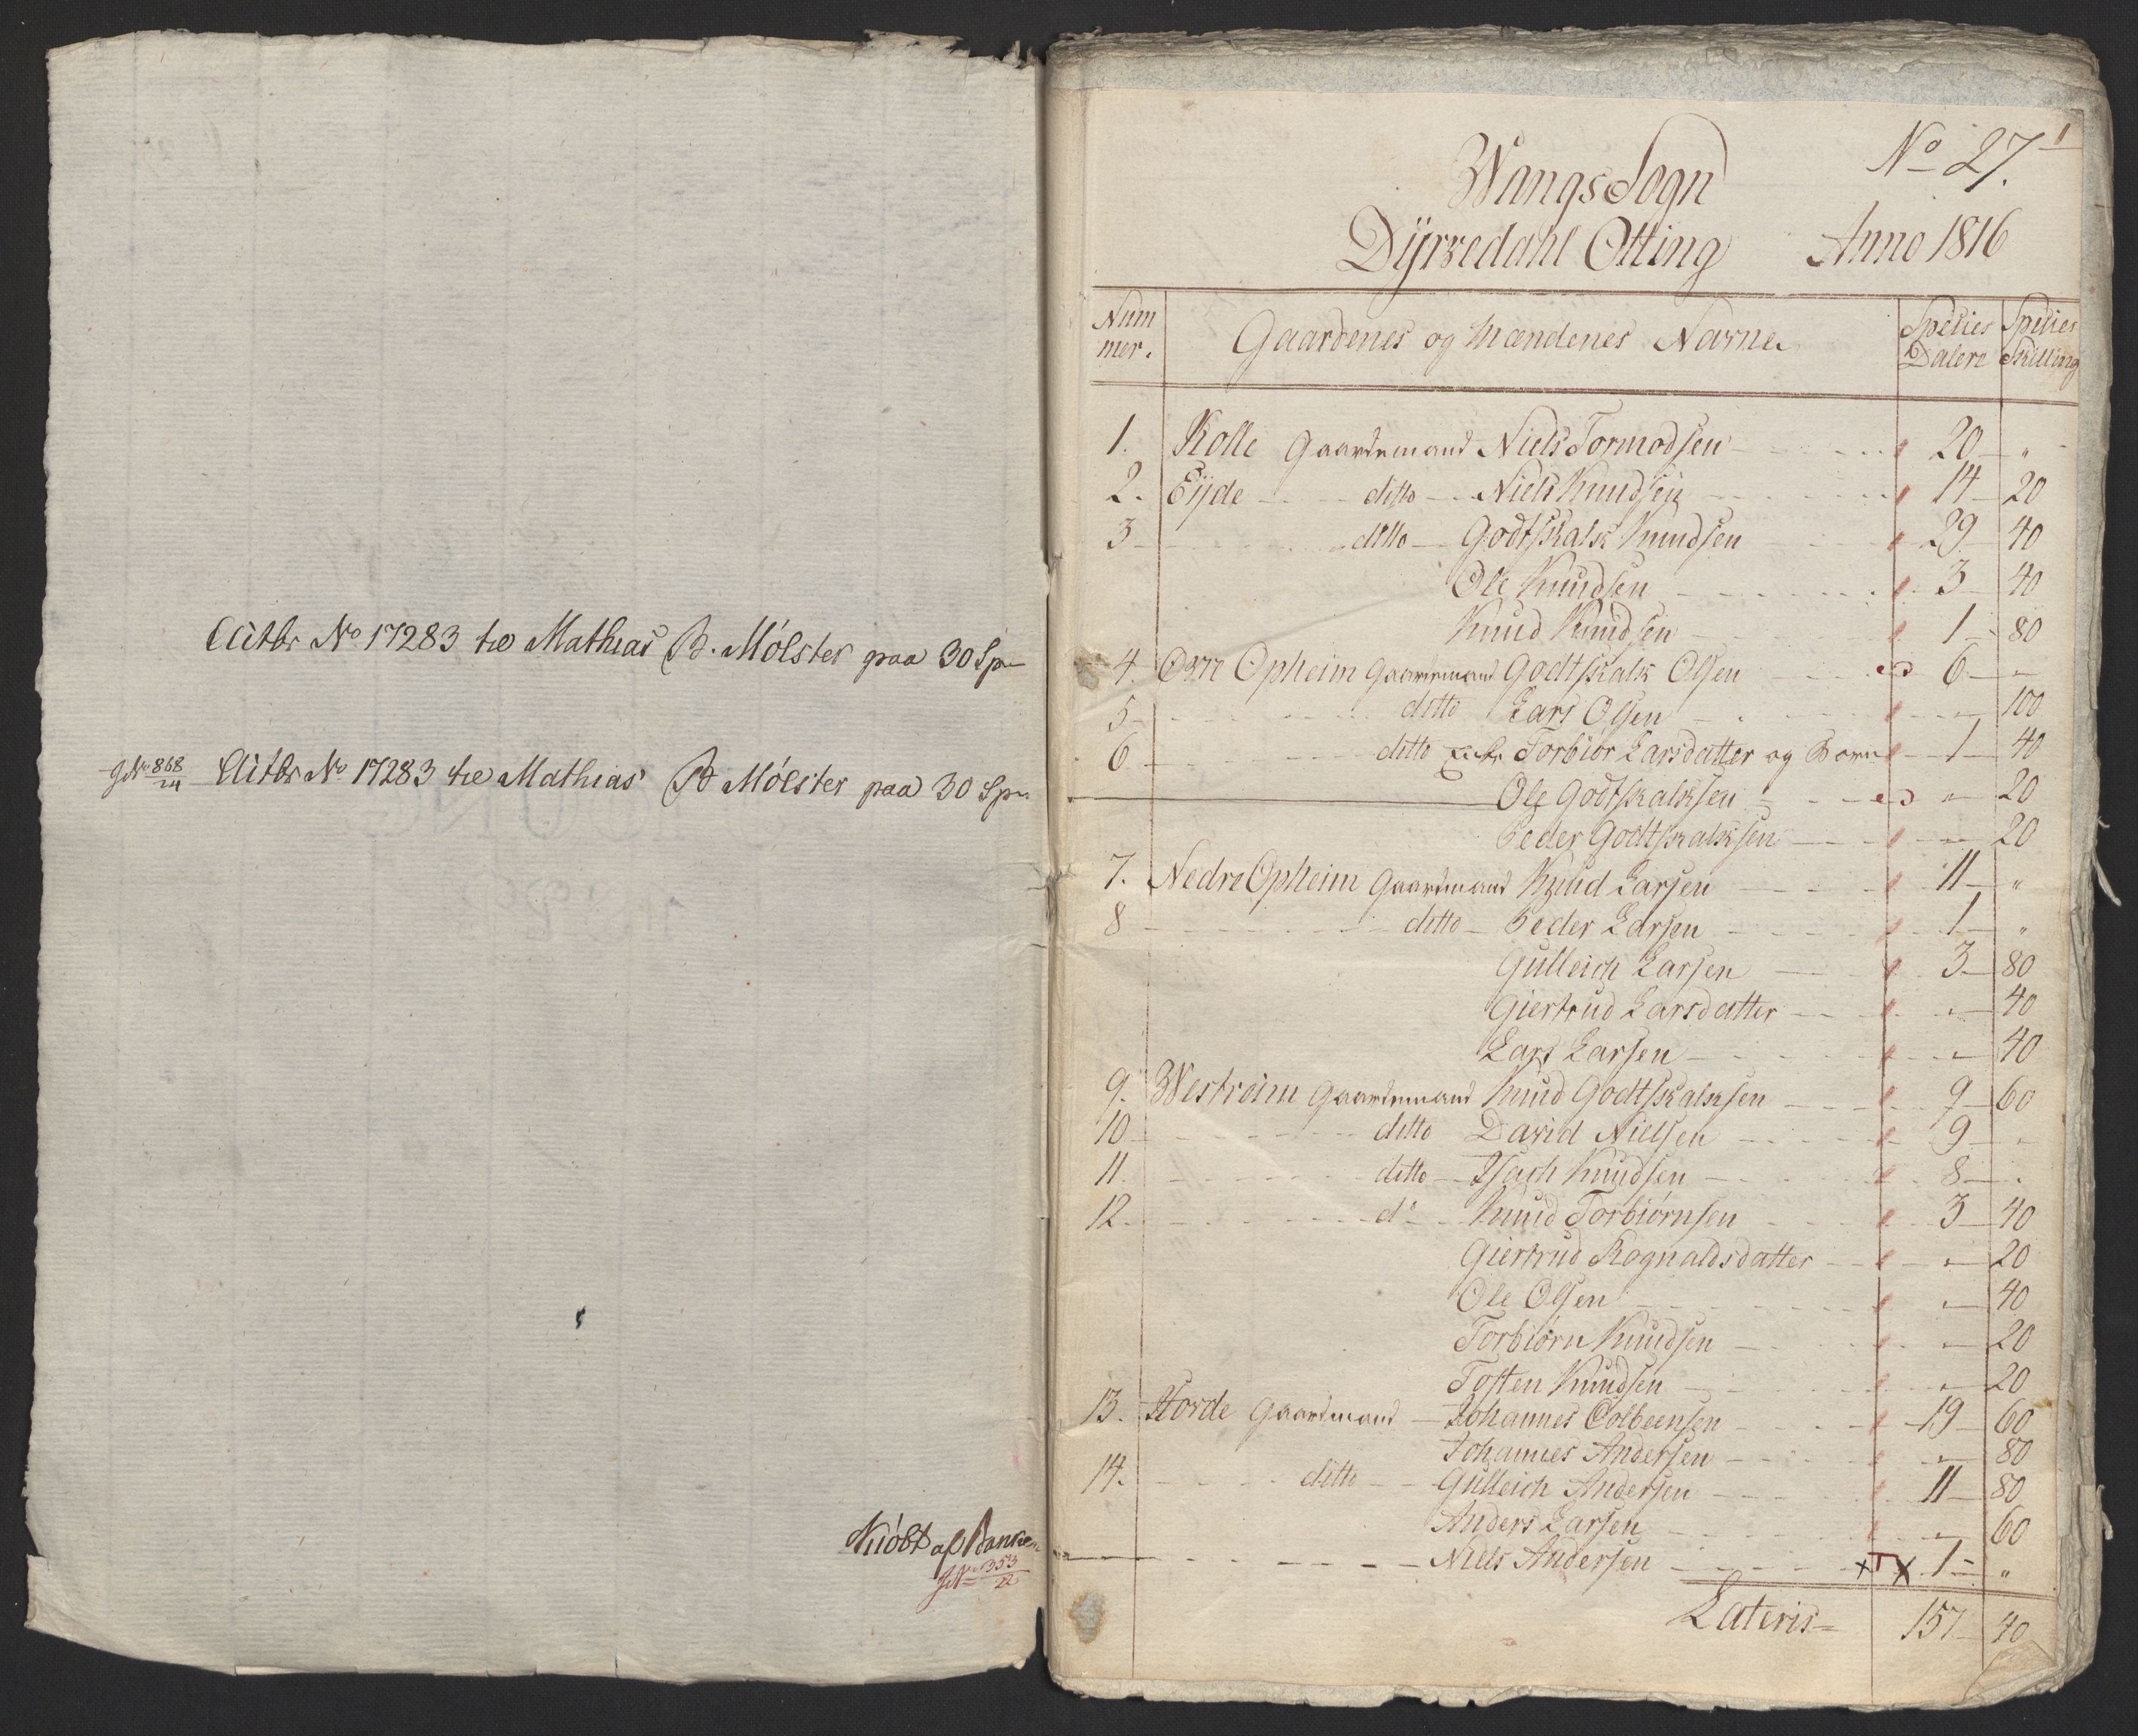 Actbr No 17283 til Mathias B. Mölster paa 30 Sp
gN 868/24 Actbr No 17283 til Mathias B Mölster paa 30 Sp.
Kiöbt af Banken
353/22
1
No 27.
Wangs Sogn
Dÿrvedahl Otting Anno 1816
Nummer. Gaardenes og Mændenes Navne Spesies Dalere Spesies Skilling
1. Kolle Gaardemand Niels Tormodsen 20 "
2. Eÿde ditto Niels Knudsen 14 20
3 ditto Godtskalk Knudsen 29 40
Ole Knudsen 3 40
Knud Knudsen 1 80
4. Ovre Opheim Gaardemand Godtskalk Olsen 6 "
5 ditto Lars Olsen " 100
6 ditto Enke Torbiör Larsdatter og Börn 1 40
Ole Godtskalksen " 20
Peder Godtskalksen " 20
7. Nedre Opheim Gaardmand Knud Larsen 11 "
8 ditto Peder Larsen 1 "
Gulleich Larsen 3 80
Giertrud Larsdatter " 40
Lars Larsen " 40
9. Westreim Gaardemand Knud Godtskalksen 9 60
10 ditto David Nielsen 9 "
11. ditto Isach Knudsen 8 "
12. do Knud Torbiörnsen 3 40
Giertrud Rognaldsdatter " 20
Ole Olsen " 40
Torbiörn Knudsen " 20
Tosten Knudsen " 20
13. Horde Gaardmand Johannes Colbeensen 19 60
Johannes Andersen " 80
14. ditto Gulleich Andersen 11 80
Anders Larsen " 60
Niels Andersen 7 "
Lateris 157 40